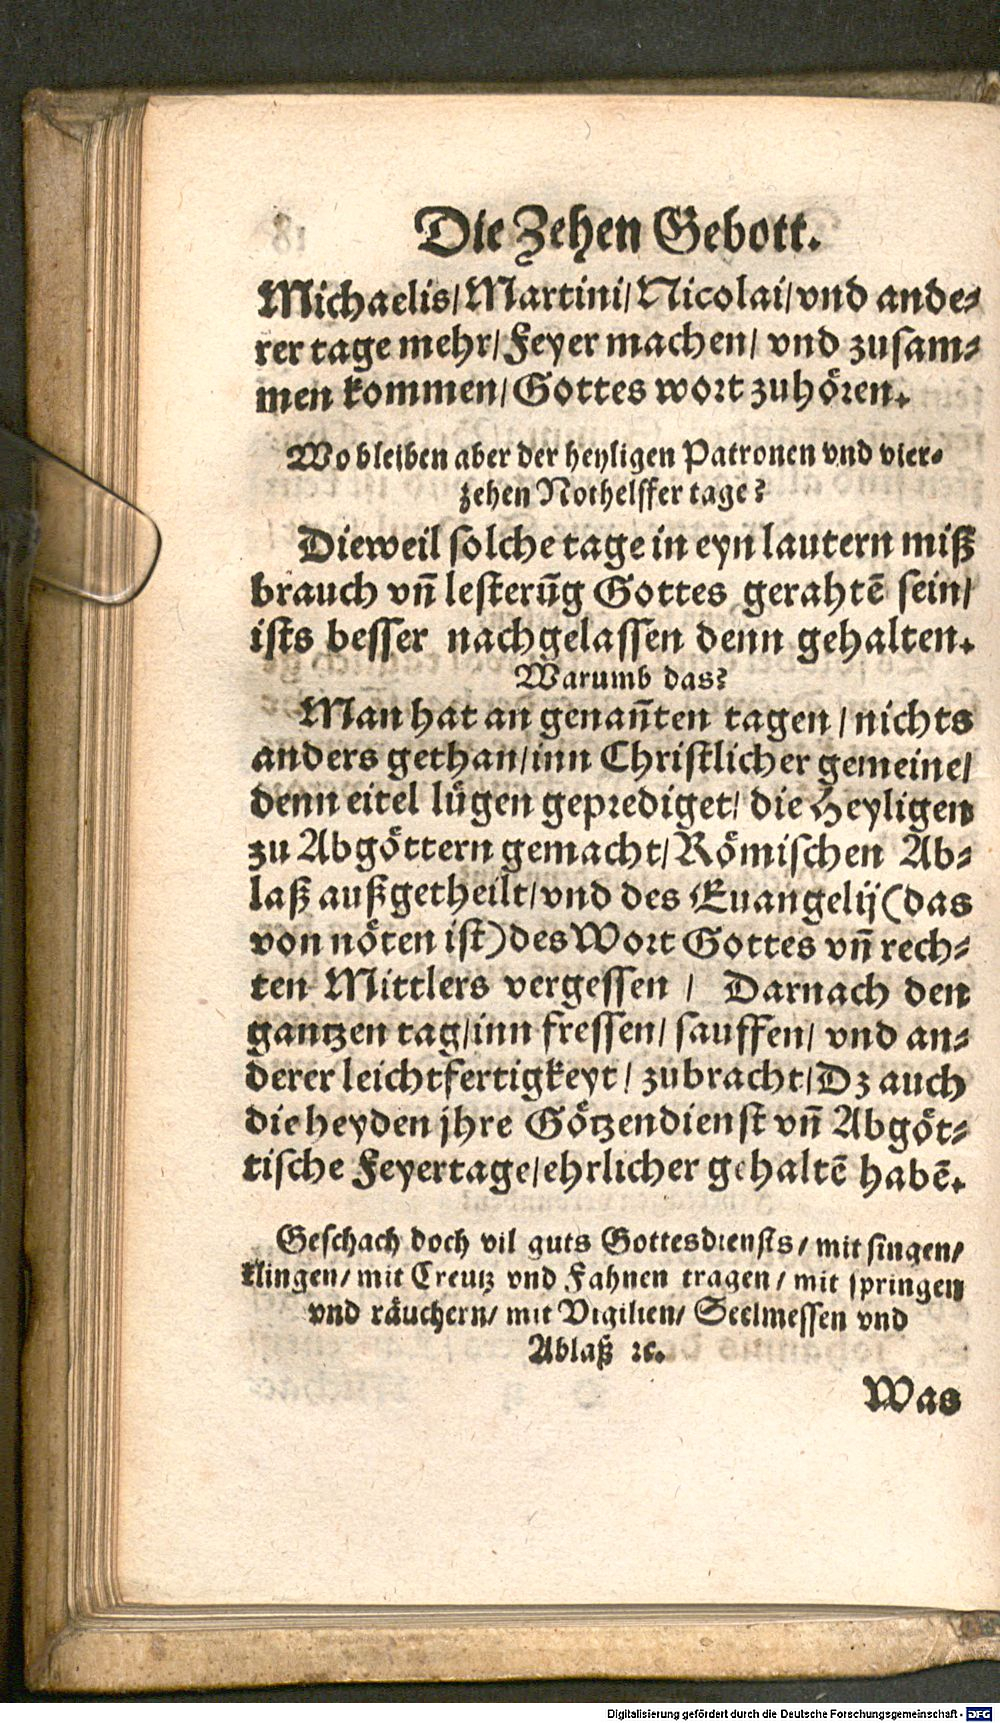 Die Zehen Gebott.
Michaelis/ Martini/ Nicolai/ vnd ande⸗
rer tage mehr/ Feyer machen/ vnd zusam⸗
men kommen/ Gottes wort zuhören.
Wo bleiben aber der heyligen Patronen vnd vier⸗
zehen Nothelffer tage?
Dieweil solche tage in eyn lautern miß
brauch vñ lesterũg Gottes gerahtẽ sein/
ists besser nachgelassen denn gehalten.
Warumb das?
Man hat an genañten tagen / nichts
anders gethan/ inn Christlicher gemeine/
denn eitel lügen geprediget/ die Heyligen
zu Abgöttern gemacht/ Römischen Ab⸗
laß außgetheilt/ vnd des Euangelij (das
von nöten ist) des Wort Gottes vñ rech⸗
ten Mittlers vergessen / Darnach den
gantzen tag/ inn fressen/ sauffen/ vnd an⸗
derer leichtfertigkeyt/ zubracht/ Dz auch
die heyden jhre Götzendienst vñ Abgöt⸗
tische Feyertage/ ehrlicher gehaltẽ habẽ.
Geschach doch vil guts Gottesdiensts/ mit singen/
klingen/ mit Creutz vnd Fahnen tragen/ mit springen
vnd räuchern/ mit Vigilien/ Seelmessen vnd
Ablaß ꝛc.
Was
Digitalisierung gefördert durch die Deutsche Forschungsgemeinschaft - DFG